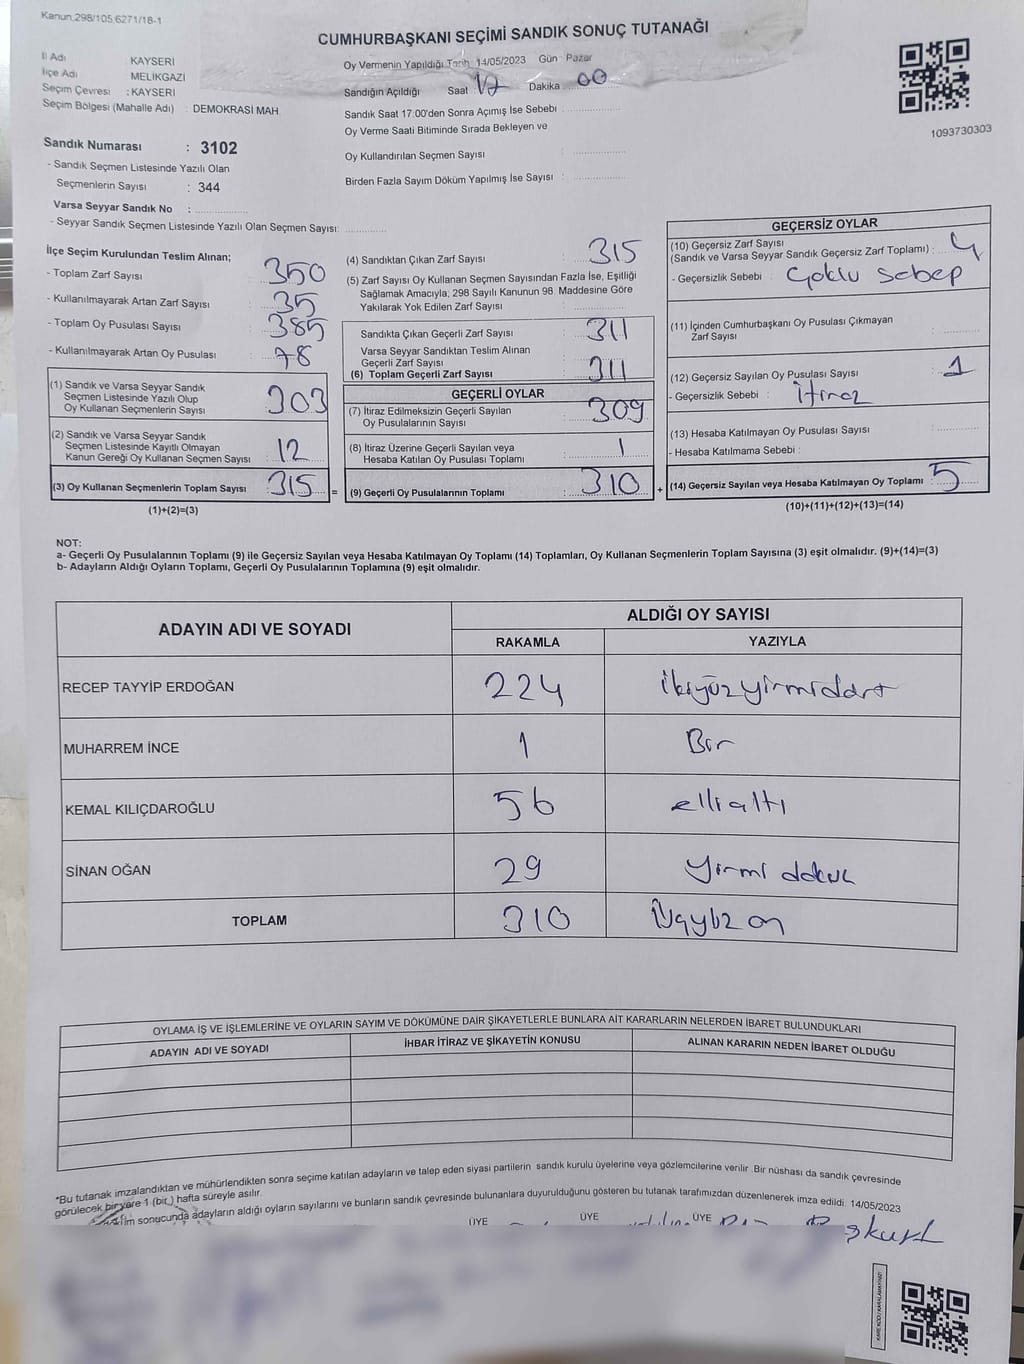 Kanun,298/105,6271/18-1
CUMHURBAŞKANI SEÇİMİ SANDIK SONUÇ TUTANAĞI
İl Adı : KAYSERİ
İlçe Adı : MELİKGAZİ
Seçim Çevresi : KAYSERİ
Seçim Bölgesi (Mahalle Adı) : DEMOKRASİ MAH.
Oy Vermenin Yapıldığı Tarih 14/05/2023 Gün Pazar
Sandığın Açıldığı Saat 17 Dakika 00
Sandık Saat 17:00'den Sonra Açımış İse Sebebi :
Oy Verme Saati Bitiminde Sırada Bekleyen ve
Oy Kullandırılan Seçmen Sayısı :
Birden Fazla Sayım Döküm Yapılmış İse Sayısı :
1093730303
Sandık Numarası : 3102
- Sandık Seçmen Listesinde Yazılı Olan
Seçmenlerin Sayısı : 344
Varsa Seyyar Sandık No :
- Seyyar Sandık Seçmen Listesinde Yazılı Olan Seçmen Sayısı:
İlçe Seçim Kurulundan Teslim Alınan;
- Toplam Zarf Sayısı : 350
- Kullanılmayarak Artan Zarf Sayısı : 35
- Toplam Oy Pusulası Sayısı : 385
- Kullanılmayarak Artan Oy Pusulası : 78
(1) Sandık ve Varsa Seyyar Sandık
Seçmen Listesinde Yazılı Olup
Oy Kullanan Seçmenlerin Sayısı : 303
(2) Sandık ve Varsa Seyyar Sandık
Seçmen Listesinde Kayıtlı Olmayan
Kanun Gereği Oy Kullanan Seçmen Sayısı : 12
(3) Oy Kullanan Seçmenlerin Toplam Sayısı : 315 =
(1)+(2)=(3)
(4) Sandıktan Çıkan Zarf Sayısı : 315
(5) Zarf Sayısı Oy Kullanan Seçmen Sayısından Fazla İse, Eşitliği
Sağlamak Amacıyla; 298 Sayılı Kanunun 98. Maddesine Göre
Yakılarak Yok Edilen Zarf Sayısı :
Sandıkta Çıkan Geçerli Zarf Sayısı : 311
Varsa Seyyar Sandıktan Teslim Alınan
Geçerli Zarf Sayısı :
(6) Toplam Geçerli Zarf Sayısı : 311
GEÇERLİ OYLAR
(7) İtiraz Edilmeksizin Geçerli Sayılan
Oy Pusulalarının Sayısı : 309
(8) İtiraz Üzerine Geçerli Sayılan veya
Hesaba Katılan Oy Pusulası Toplamı : 1
(9) Geçerli Oy Pusulalarının Toplamı : 310 +
GEÇERSİZ OYLAR
(10) Geçersiz Zarf Sayısı
(Sandık ve Varsa Seyyar Sandık Geçersiz Zarf Toplamı) : 4
- Geçersizlik Sebebi : Çoklu Sebep
(11) İçinden Cumhurbaşkanı Oy Pusulası Çıkmayan
Zarf Sayısı :
(12) Geçersiz Sayılan Oy Pusulası Sayısı : 1
- Geçersizlik Sebebi : İtiraz
(13) Hesaba Katılmayan Oy Pusulası Sayısı :
- Hesaba Katılmama Sebebi :
(14) Geçersiz Sayılan veya Hesaba Katılmayan Oy Toplamı : 5
(10)+(11)+(12)+(13)=(14)
NOT:
a- Geçerli Oy Pusulalarının Toplamı (9) ile Geçersiz Sayılan veya Hesaba Katılmayan Oy Toplamı (14) Toplamları, Oy Kullanan Seçmenlerin Toplam Sayısına (3) eşit olmalıdır. (9)+(14)=(3)
b- Adayların Aldığı Oyların Toplamı, Geçerli Oy Pusulalarının Toplamına (9) eşit olmalıdır.
ADAYIN ADI VE SOYADI
ALDIĞI OY SAYISI
RAKAMLA YAZIYLA
RECEP TAYYİP ERDOĞAN 224 ikiyüzyirmidört
MUHARREM İNCE 1 Bir
KEMAL KILIÇDAROĞLU 56 ellialtı
SİNAN OĞAN 29 Yirmi dokuz
TOPLAM 310 Üçyüz on
OYLAMA İŞ VE İŞLEMLERİNE VE OYLARIN SAYIM VE DÖKÜMÜNE DAİR ŞİKAYETLERLE BUNLARA AİT KARARLARIN NELERDEN İBARET BULUNDUKLARI
ADAYIN ADI VE SOYADI İHBAR İTİRAZ VE ŞİKAYETİN KONUSU ALINAN KARARIN NEDEN İBARET OLDUĞU
*Bu tutanak imzalandıktan ve mühürlendikten sonra seçime katılan adayların ve talep eden siyasi partilerin sandık kurulu üyelerine veya gözlemcilerine verilir. Bir nüshası da sandık çevresinde
görülecek bir yere 1 (bir) hafta süreyle asılır.
sonucunda adayların aldığı oyların sayılarını ve bunların sandık çevresinde bulunanlara duyurulduğunu gösteren bu tutanak tarafımızdan düzenlenerek imza edildi. 14/05/2023
ÜYE ÜYE ÜYE
KAREKODU KARALAMAYINIZ!